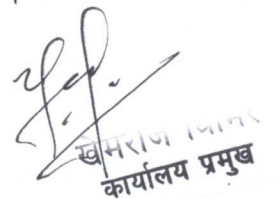 खेमराज
कार्यालय प्रमुख